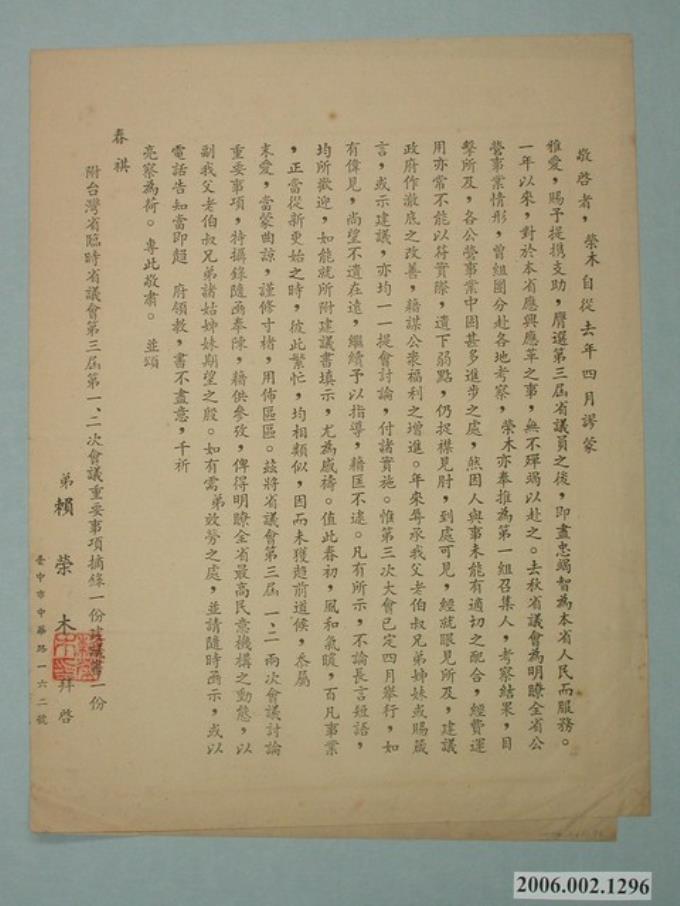 敬啓者，榮木自從去年四月謬蒙
雅愛，賜予提携支助，膺選第三屆省議員之後，即盡忠竭智為本省人民而服務。
一年以來，對於本省應興應革之事，無不殫竭以赴之。去秋省議會為明瞭全省公
營事業情形，曾組團分赴各地考察，榮木亦奉推為第一組召集人，考察結果，目
擊所及，各公營事業中固甚多進步之處，然因人與事未能有適切之配合，經費運
用亦常不能以符實際，遺下弱點，仍捉襟見肘，到處可見，經就眼見所及，建議
政府作澈底之改善，藉謀公衆福利之增進。年來辱承我父老伯叔兄弟姊妹或賜箴
言，或示建議，亦均一一提會討論，付諸實施。惟第三次大會已定四月舉行，如
有偉見，尚望不遺在遠，繼續予以指導，藉匡不逮。凡有所示，不論長言短語，
均所歡迎，如能就所附建議書填示，尤為感禱。值此春初，風和氣暖，百凡事業
，正當從新更始之時，彼此繁忙，均相類似，因而未獲趨前道候，忝屬
末愛，當蒙曲諒，謹修寸楮，用佈區區。茲將省議會第三屆一、二兩次會議討論
重要事項，特攝錄隨函奉陳，藉供參攷，俾得明瞭全省最高民意機構之動態，以
副我父老伯叔兄弟諸姑姊妹期望之殷。如有需弟效勞之處，並請隨時函示，或以
電話告知當即趨　府領教，書不盡意，千祈
亮察為荷。專此敬肅。並頌
春祺
附台灣省臨時省議會第三屆第一、二次會議重要事項摘錄一份建議書一份
弟 賴榮木 拜啓
臺中市中華路一六二號
2006.002.1296